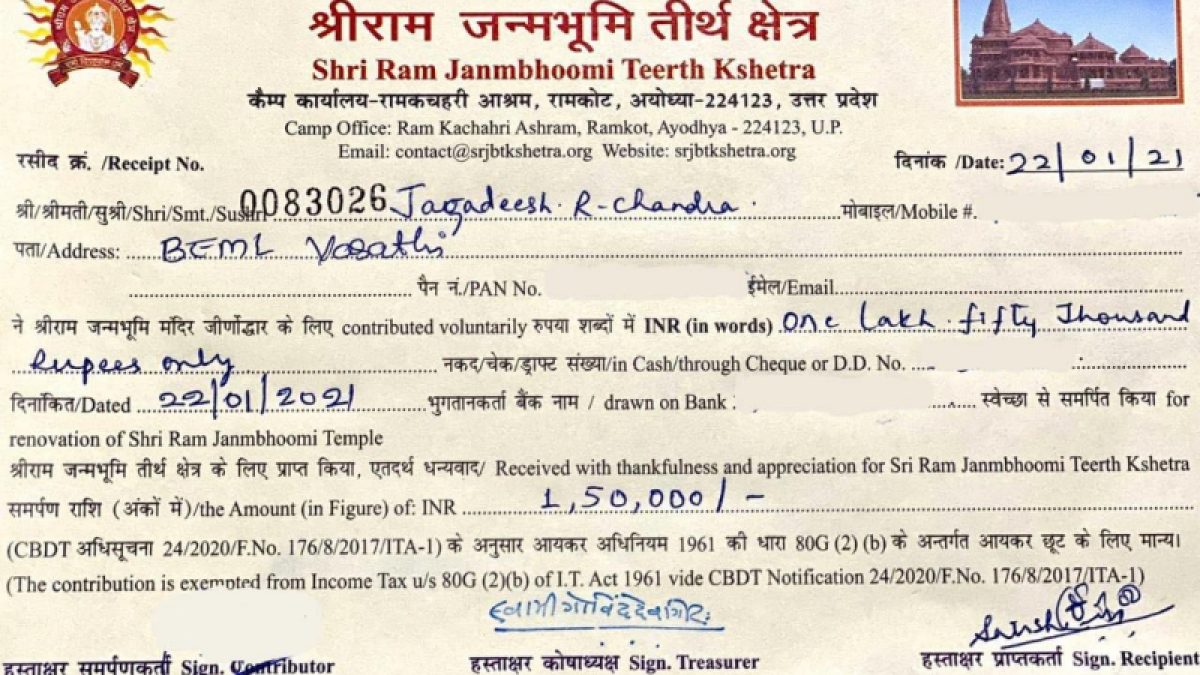 श्रीराम जन्मभूमि तीर्थ क्षेत्र
Shri Ram Janmbhoomi Teerth Kshetra
कैम्प कार्यालय-रामकचहरी आश्रम, रामकोट, अयोध्या-224123, उत्तर प्रदेश
Camp Office: Ram Kachahri Ashram, Ramkot, Ayodhya - 224123, U.P.
Email: contact@srjbtkshetra.org Website: srjbtkshetra.org
रसीद क्रं. /Receipt No. दिनांक /Date: 22/01/21
0083026
श्री/श्रीमती/सुश्री/Shri/Smt./Sushri Jagadeesh. R-Chandra. मोबाइल/Mobile #.
पता/Address: BEML Vasathi
पैन नं./PAN No. ईमेल/Email
ने श्रीराम जन्मभूमि मंदिर जीर्णोद्धार के लिए contributed voluntarily रुपया शब्दों में INR (in words) One Lakh. fifty Thousand
Rupees only नकद/चेक/ड्राफ्ट संख्या/in Cash/through Cheque or D.D. No.
दिनांकित/Dated 22/01/2021 भुगतानकर्ता बैंक नाम / drawn on Bank : स्वेच्छा से समर्पित किया for
renovation of Shri Ram Janmbhoomi Temple
श्रीराम जन्मभूमि तीर्थ क्षेत्र के लिए प्राप्त किया, एतदर्थ धन्यवाद/ Received with thankfulness and appreciation for Sri Ram Janmbhoomi Teerth Kshetra
समर्पण राशि (अंकों में)/the Amount (in Figure) of: INR 1,50,000/-
(CBDT अधिसूचना 24/2020/F.No. 176/8/2017/ITA-1) के अनुसार आयकर अधिनियम 1961 की धारा 80G (2) (b) के अन्तर्गत आयकर छूट के लिए मान्य।
(The contribution is exempted from Income Tax u/s 80G (2)(b) of I.T. Act 1961 vide CBDT Notification 24/2020/F.No. 176/8/2017/ITA-1)
स्वामी गोविंददेव गिरि:
हस्ताक्षर समर्पणकर्ता Sign. Contributor हस्ताक्षर कोषाध्यक्ष Sign. Treasurer हस्ताक्षर प्राप्तकर्ता Sign. Recipient